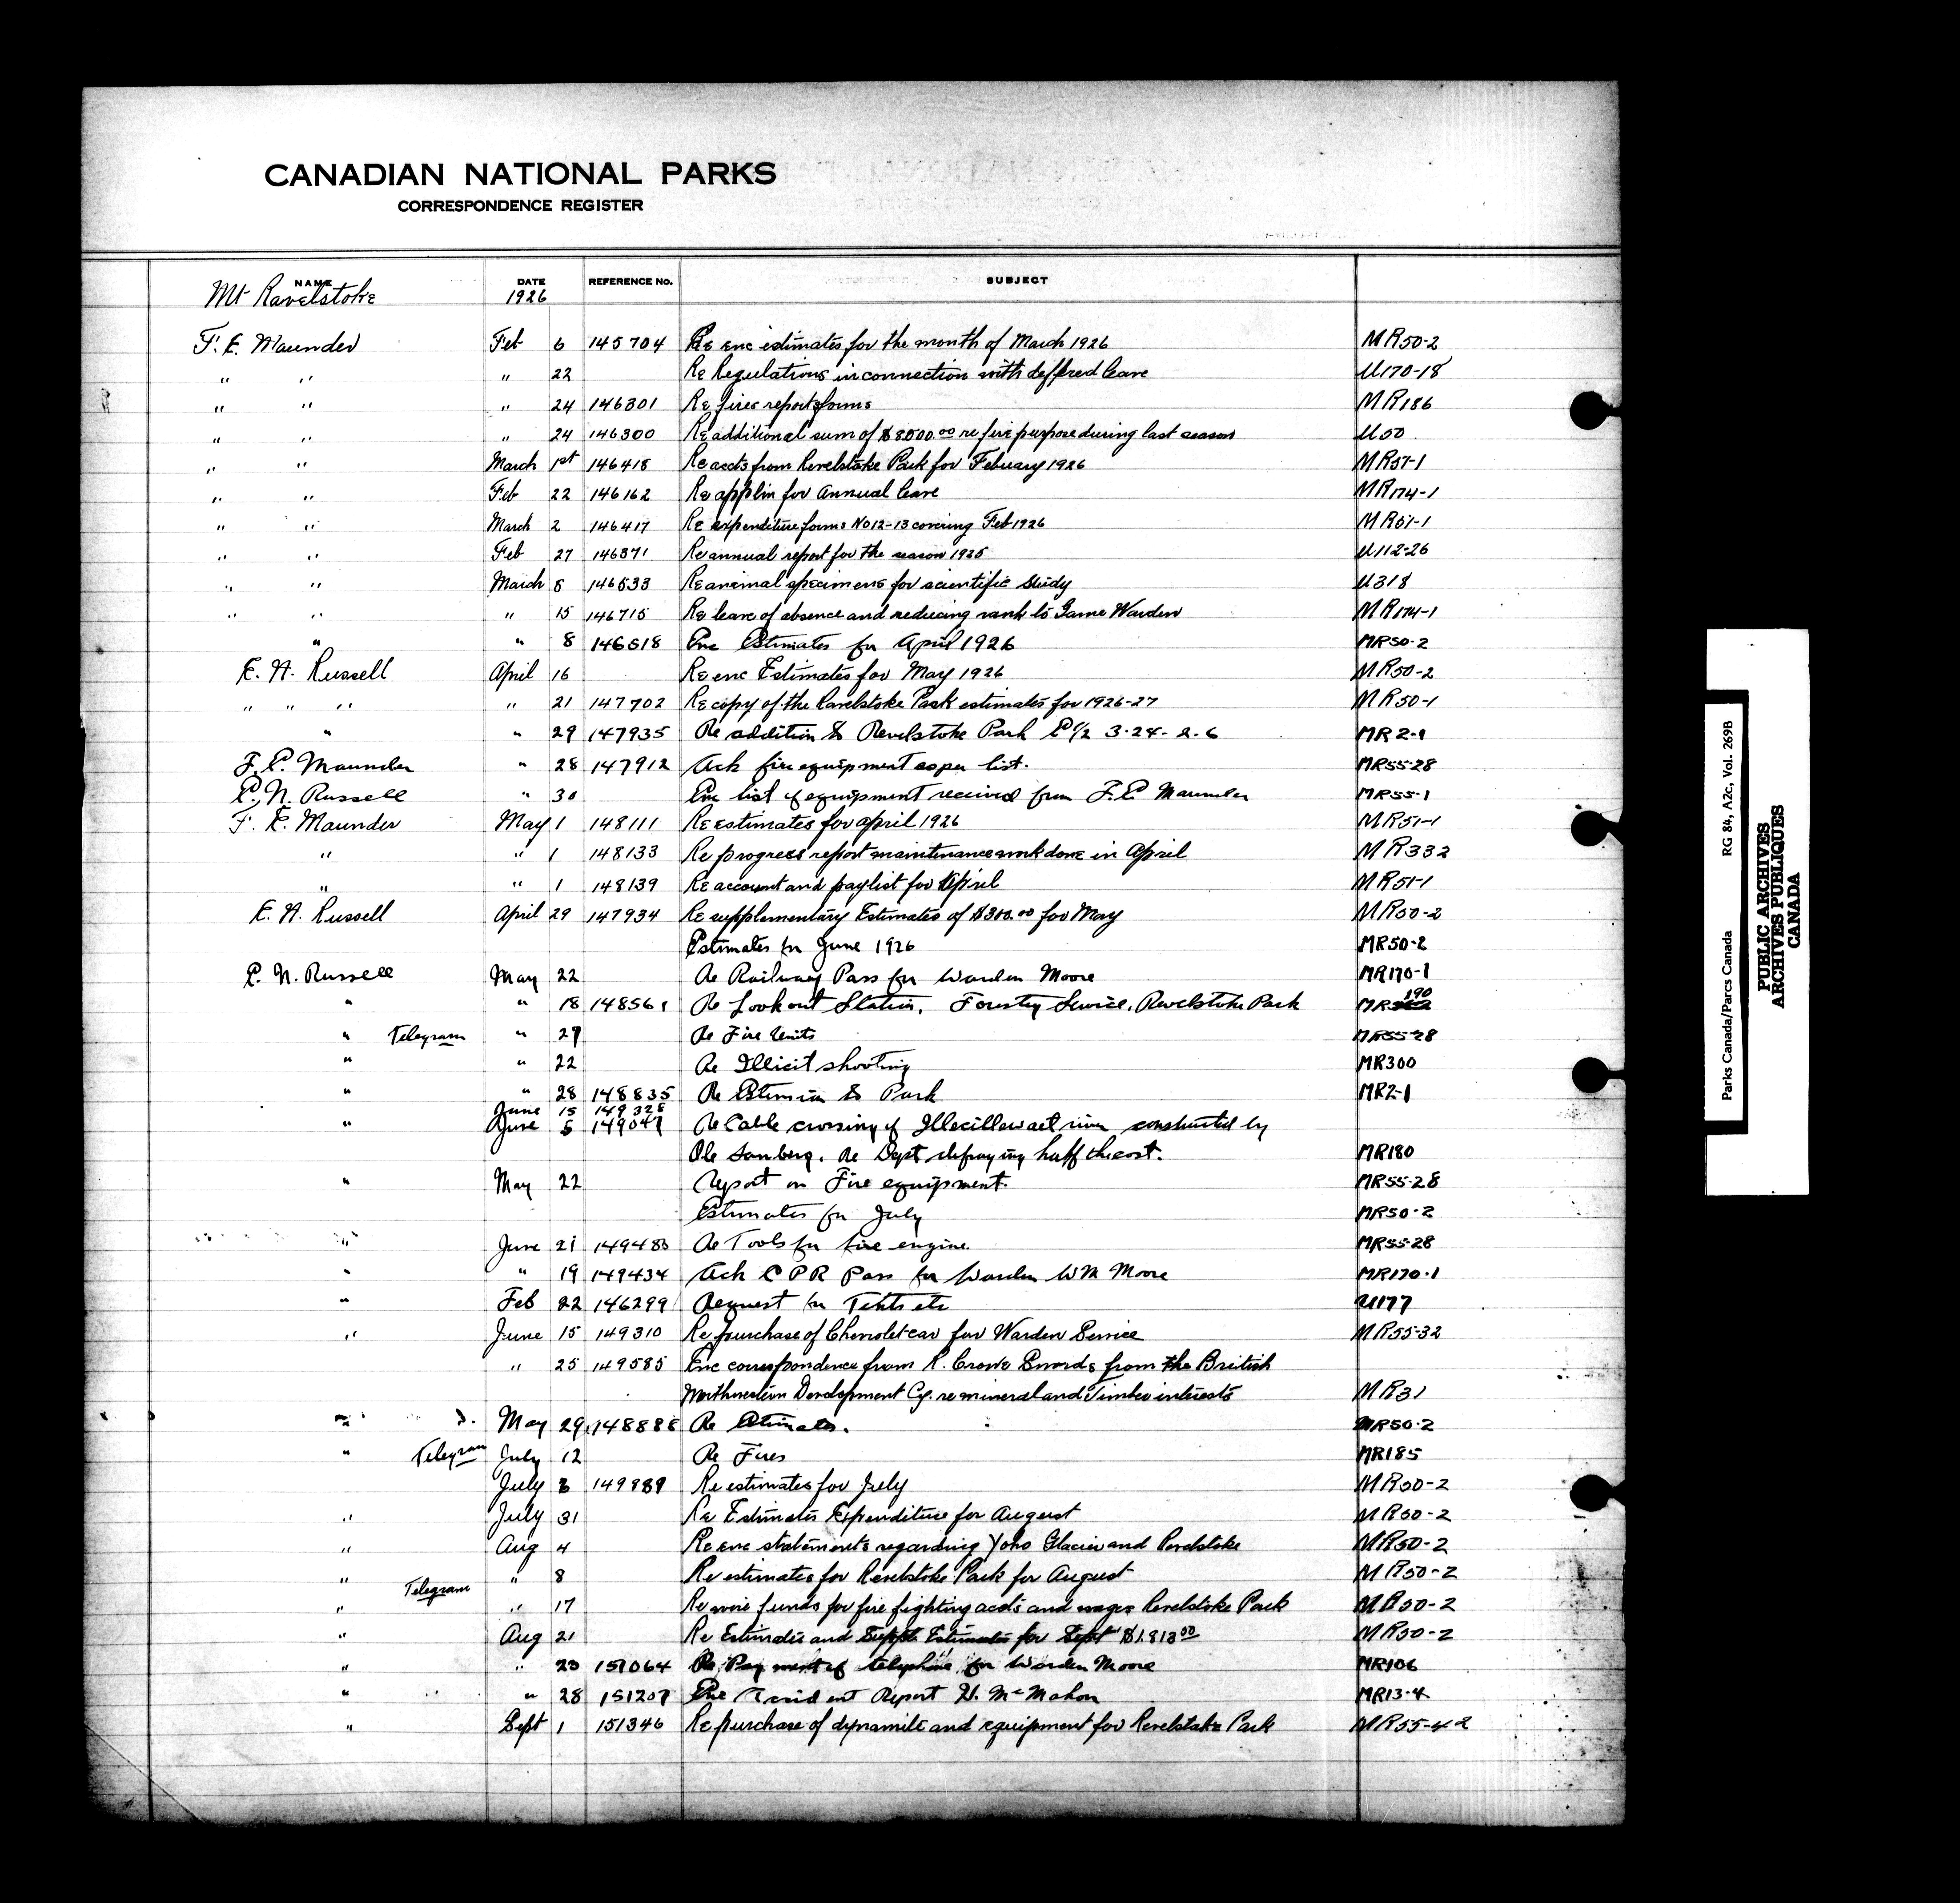 CANADIAN NATIONAL PARKS
CORRESPONDENCE REGISTER
NAME DATE REFERENCE No. SUBJECT
Mt Ravelstoke 1926
F. E. Maunder Feb 6 145704 Re enc estimates for the month of March 1926 MR50-2
" " " 22 Re Regulations in connection with deffered leave U170-18
" " " 24 146301 Re fires reports forms MR186
" " " 24 146300 Re additional sum of $8500.00 re fire purpose during last season U50
" " March 1st 146418 Re accts from Revelstoke Park for February 1926 MR51-1
" " Feb 22 146162 Re applin for Annual leave MR174-1
" " March 2 146417 Re expenditure forms No 12-13 covering Feb 1926 MR51-1
" " Feb 27 146371 Re annual report for the season 1925 U112-26
" " March 5 146533 Re animal specimens for scientific study U318
" " " 15 146715 Re leave of absence and reducing rank to Game Warden MR174-1
" " 8 146518 Enc Estimates for April 1926 MR50-2
E. N. Russell April 16 Re enc Estimates for May 1926 MR50-2
" " " " 21 147702 Re copy of the Ravelstoke Park estimates for 1926-27 MR50-1
" " 29 147935 Re addition to Revelstoke Park E1/2 3-24-2-6 MR2-1
F. E. Maunder " 28 147912 Ack fire equipment as per list. MR55-28
E. N. Russell " 30 Enc list of equipment received from F.E. Maunder MR55-1
F. E. Maunder May 1 148111 Re estimates for April 1926 MR51-1
" " 1 148133 Re progress report maintenance work done in April MR332
" " 1 148139 Re account and paylist for April MR51-1
E. N. Russell April 29 147934 Re supplementary Estimates of $300.00 for May MR50-2
Estimates for June 1926 MR50-2
E. N. Russell May 22 Re Railway Pass for Warden Moore MR170-1
" " 18 148561 Re Lookout Station, Forestry Service, Revelstoke Park MR190
" Telegram " 27 Re Fire Units MR55-28
" " 22 Re Illicit shooting MR300
" " 28 148835 Re Extension to Park MR2-1
June 15 149328
" June 5 149047 Re Cable crossing of Illecillewaet river constructed by
Ole Sanberg. Re Dept defraying half the cost. MR180
" May 22 Report on Fire equipment. MR55-28
Estimates for July MR50-2
" June 21 149483 Re Tools for fire engine. MR55-28
" " 19 149434 Ack C P R Pass for Warden WM Moore MR170-1
" Feb 22 146299 Request for Tents etc U177
" June 15 149310 Re purchase of Chevrolet car for Warden Service MR55-32
" 25 149585 Enc correspondence from R. Crowe from the British
Northwestern Development Cy. re mineral and Timber interests MR31
" May 29 148888 Re Estimates. MR50-2
" Telegram July 12 Re Fires MR185
July 3 149889 Re estimates for July MR50-2
" July 31 Re Estimates Expenditure for August MR50-2
" Aug 4 Re enc statements regarding Yoho Glacier and Revelstoke MR50-2
" " 8 Re estimates for Revelstoke Park for August MR50-2
" Telegram " 17 Re more funds for fire fighting accts and wages Revelstoke Park MR50-2
" Aug 21 Re Estimates and Suppl. Estimates for Sept $1,813.00 MR50-2
" " 23 151064 Re Payment of telephone for Warden Moore MR106
" " 28 151207 Enc Accident Report H. McMahon MR13-4
" Sept 1 151346 Re purchase of dynamite and equipment for Revelstake Park MR55-42
Parks Canada/Parcs Canada RG 84, A2c, Vol. 269B
PUBLIC ARCHIVES
ARCHIVES PUBLIQUES
CANADA